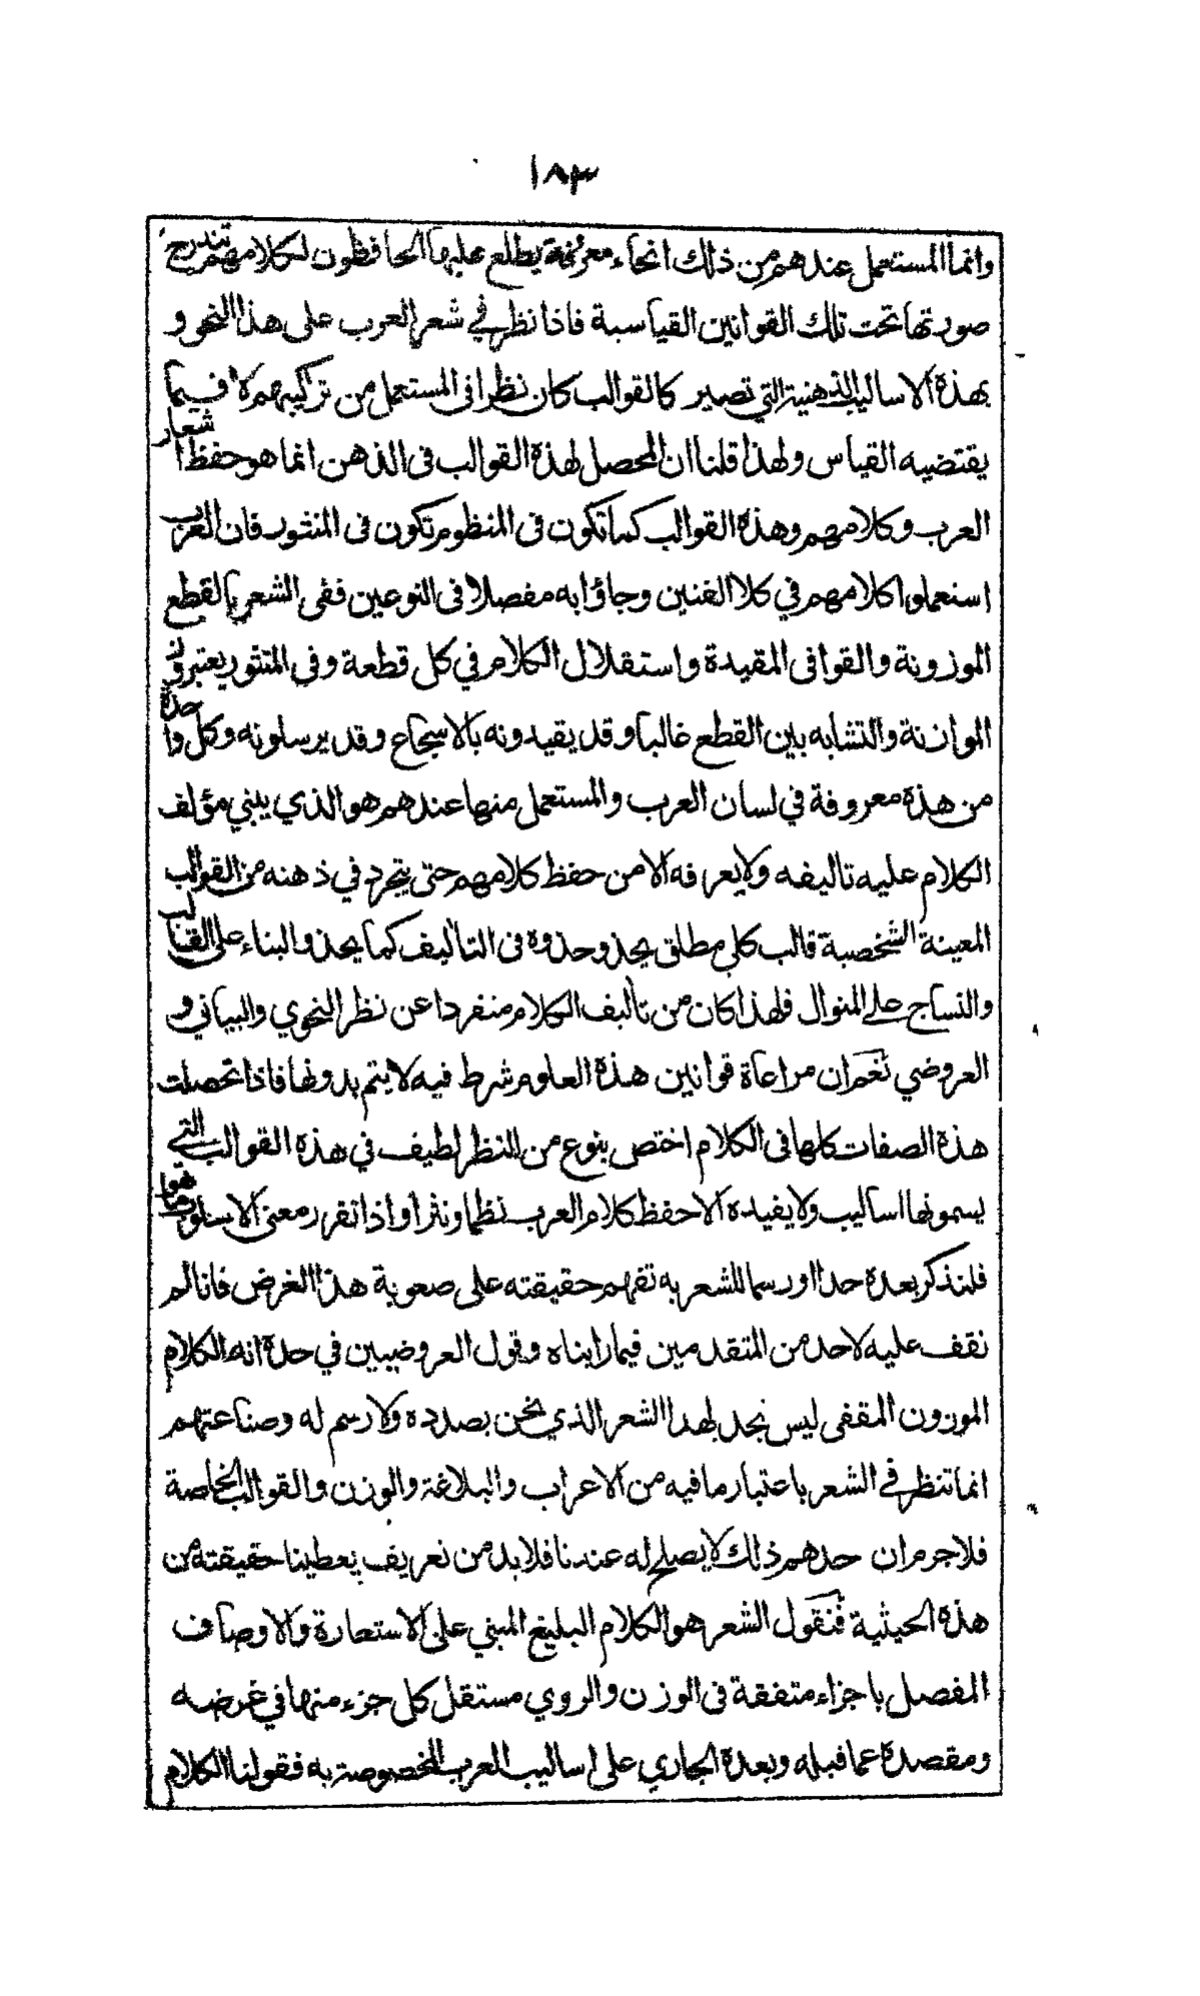 ١٨٣
وانما المستعمل عندهم من ذلك انحاء معروفة يطلع عليها الحافظون لكلامهم تندرج
صورتها تحت تلك القوانين القياسية فاذا نظر في شعر العرب على هذا النحو و
بهذه الاساليب الذهنية التي تصير كالقوالب كان نظرا فى المستعمل من تركيبهم لا فيما
يقتضيه القياس ولهذا قلنا ان المحصل لهذه القوالب فى الذهن انما هو حفظ اشعار
العرب وكلامهم وهذه القوالب كما تكون فى المنظوم تكون فى المنثور فان العرب
استعملوا كلامهم في كلا الفنين وجاؤا به مفصلا فى النوعين ففى الشعر بالقطع
الموزونة والقوافى المقيدة واستقلال الكلام في كل قطعة وفى المنثور يعتبرون
الموازنة والتشابه بين القطع غالبا وقد يقيدونه بالاسجاع وقد يرسلونه وكل واحدة
من هذه معروفة في لسان العرب والمستعمل منها عندهم هو الذي يبني مؤلف
الكلام عليه تاليفه ولا يعرفه الا من حفظ كلامهم حتى يتجرد في ذهنه من القوالب
المعينة الشخصية قالب كلي مطلق يحذو حذوه فى التاليف كما يحذو البناء على القالب
والنساج على المنوال فلهذا كان من تاليف الكلام منفردا عن نظر النحوي والبياني و
العروضي نعم ان مراعاة قوانين هذه العلوم شرط فيه لا يتم بدونها فاذا تحصلت
هذه الصفات كلها فى الكلام اختص بنوع من النظر لطيف في هذه القوالب التي
يسمونها اساليب ولا يفيده الا حفظ كلام العرب نظما ونثرا واذا تقرر معنى الاسلوب ما هو
فلنذكر بعده حدا او رسما للشعر به تفهم حقيقته على صعوبة هذا الغرض فانا لم
نقف عليه لاحد من المتقدمين فيما رايناه وقول العروضيين في حده انه الكلام
الموزون المقفى ليس نجد لهذا الشعر الذي نحن بصدده ولا رسم له وصناعتهم
انما تنظر في الشعر باعتبار ما فيه من الاعراب والبلاغة والوزن والقوالب الخاصة
فلا جرم ان حدهم ذلك لا يصلح له عندنا فلا بد من تعريف يعطينا حقيقته من
هذه الحيثية فنقول الشعر هو الكلام البليغ المبني على الاستعارة والاوصاف
المفصل باجزاء متفقة فى الوزن والروي مستقل كل جزء منها في غرضه
ومقصده عما قبله وبعده الجاري على اساليب العرب المخصوصة به فقولنا الكلام